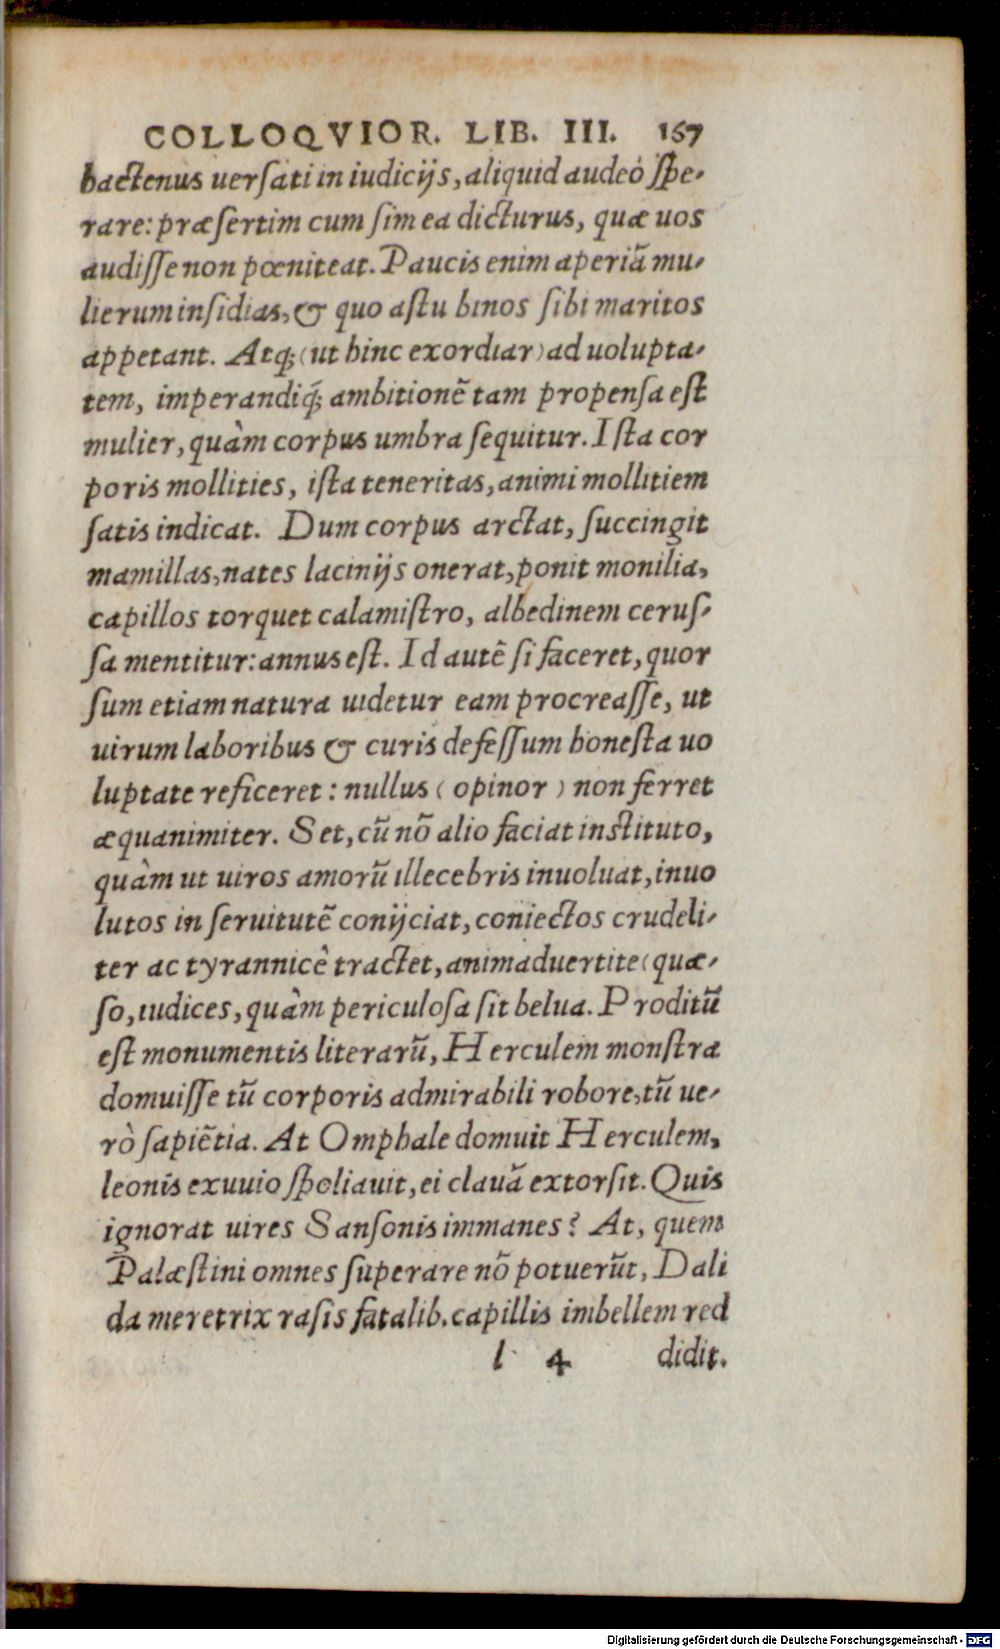 COLLOQVIOR. LIB. III. 167
hactenus uersati in iudicijs, aliquid audeo spe-
rare: præsertim cum sim ea dicturus, quæ uos
audisse non pœniteat. Paucis enim aperiã mu-
lierum insidias, & quo astu binos sibi maritos
appetant. Atq; (ut hinc exordiar) ad uolupta-
tem, imperandiq́; ambitionẽ tam propensa est
mulier, quàm corpus umbra sequitur. Ista cor
poris mollities, ista teneritas, animi mollitiem
satis indicat. Dum corpus arctat, succingit
mamillas, nates lacinijs onerat, ponit monilia,
capillos torquet calamistro, albedinem cerus-
sa mentitur: annus est. Id autẽ si faceret, quor
sum etiam natura uidetur eam procreasse, ut
uirum laboribus & curis defessum honesta uo
luptate reficeret: nullus (opinor) non ferret
æquanimiter. Set, cũ nõ alio faciat instituto,
quàm ut uiros amorũ illecebris inuoluat, inuo
lutos in seruitutẽ conijciat, coniectos crudeli-
ter ac tyrannicê tractet, animaduertite (quæ-
so, iudices, quàm periculosa sit belua. Proditũ
est monumentis literarũ, Herculem monstra
domuisse tũ corporis admirabili robore, tũ ue-
rò sapiẽtia. At Omphale domuit Herculem,
leonis exuuio spoliauit, ei clauã extorsit. Quis
ignorat uires Sansonis immanes? At, quem
Palæstini omnes superare nõ potuerũt, Dali
da meretrix rasis fatalib. capillis imbellem red
l 4 didit.
Digitalisierung gefördert durch die Deutsche Forschungsgemeinschaft - DFG